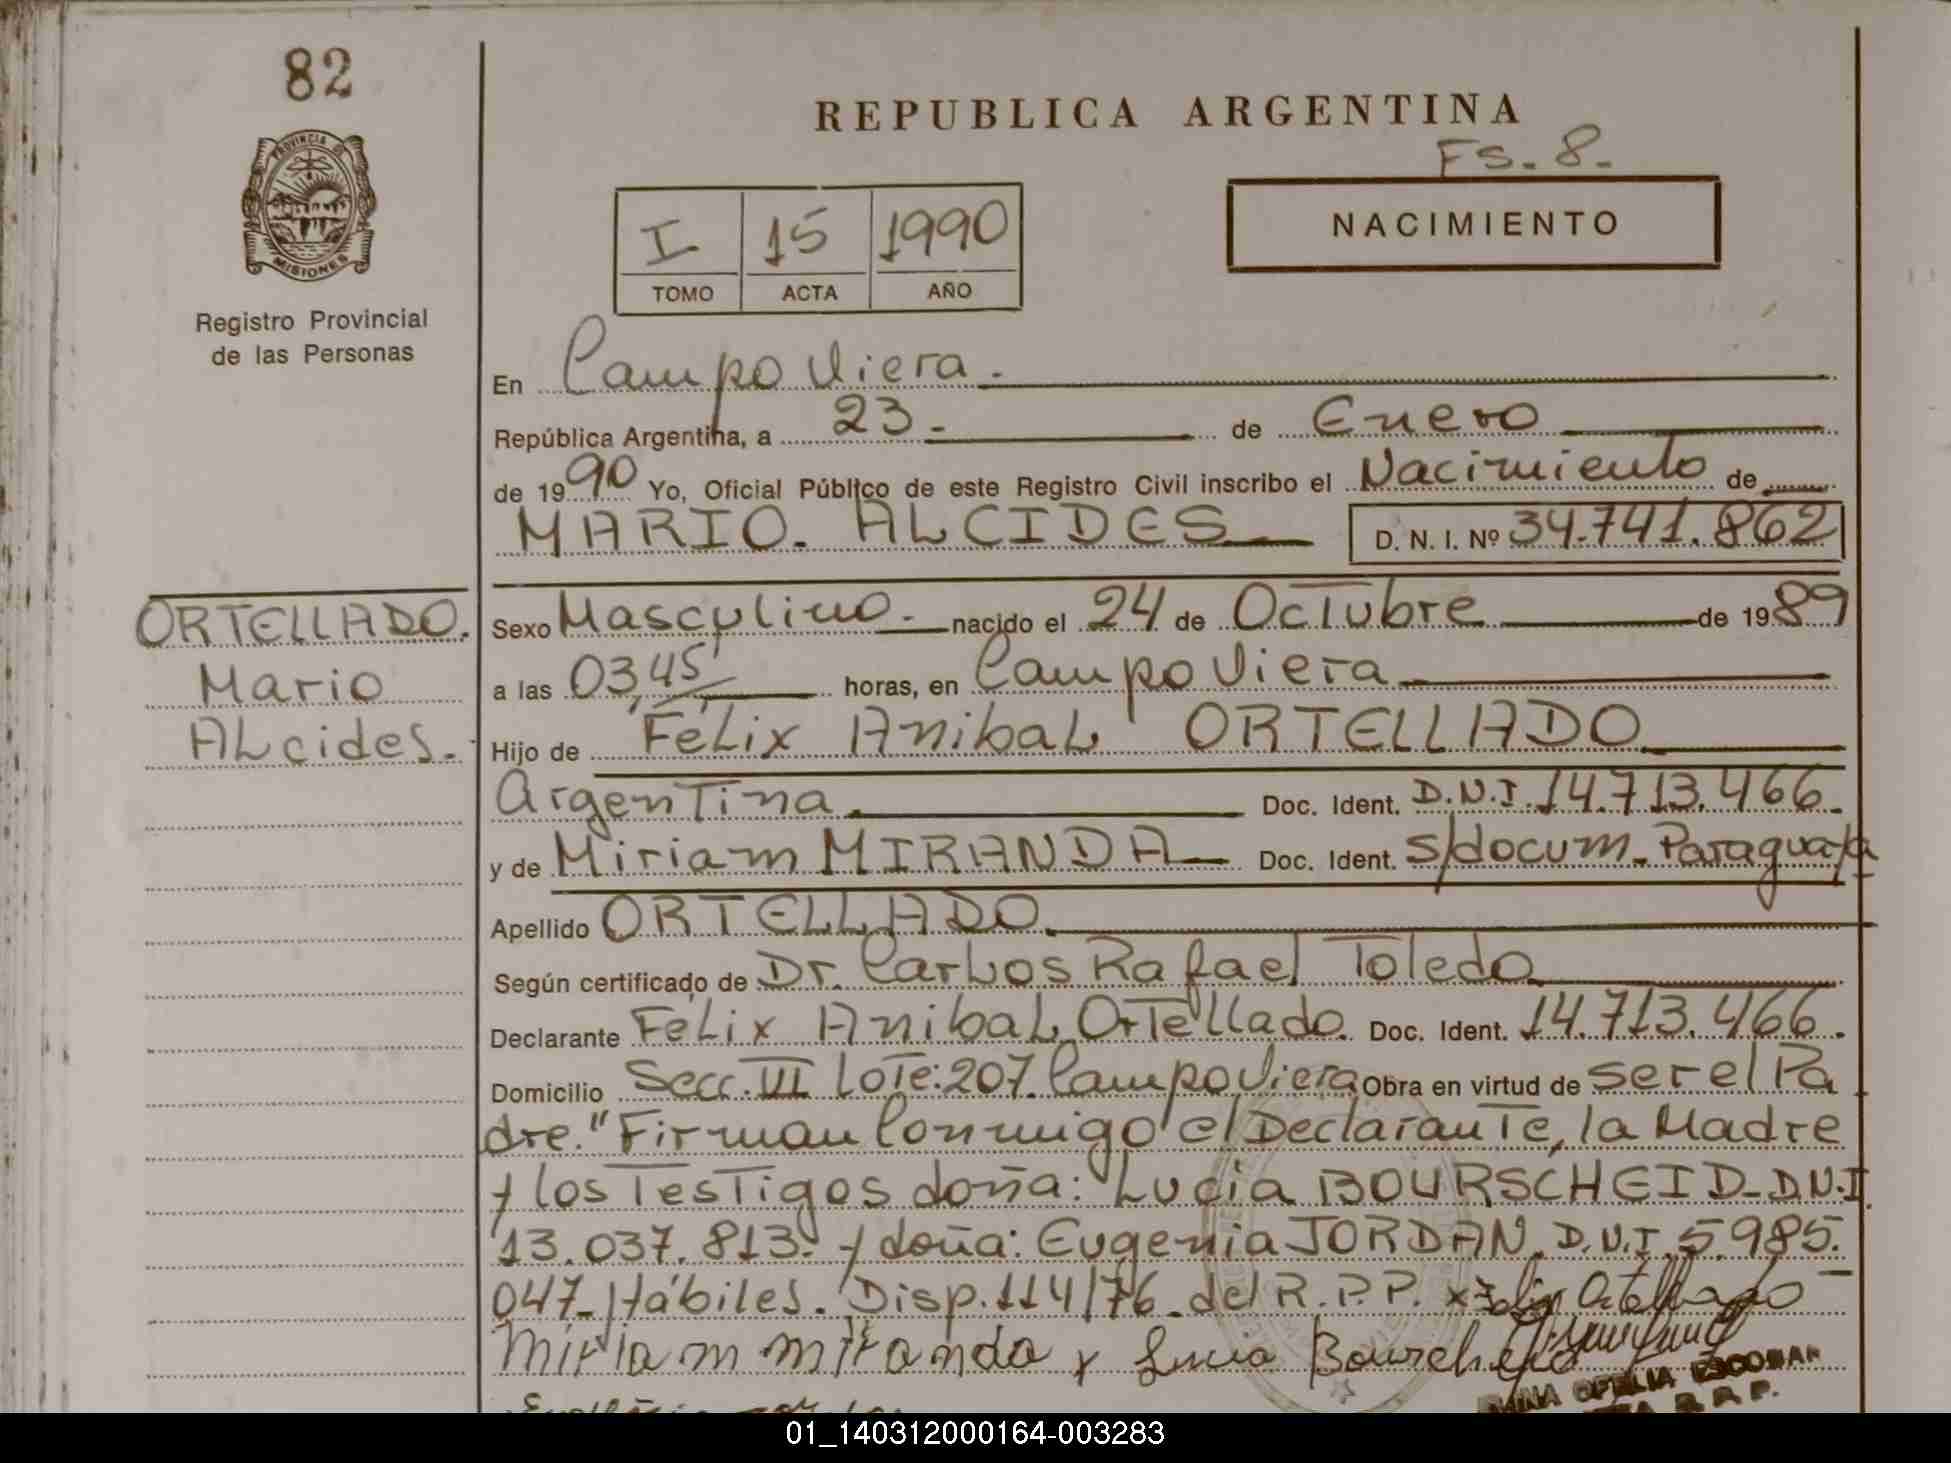 82
REPUBLICA ARGENTINA
FS. 8.
PROVINCIA DE
MISIONES
Registro Provincial
de las Personas
I 15 1990
TOMO ACTA AÑO
NACIMIENTO
En Campo Viera.
República Argentina, a 23 - de Enero
de 1990 Yo, Oficial Público de este Registro Civil inscribo el Nacimiento de
MARIO. ALCIDES D. N. I. Nº 34.741.862
ORTELLADO.
Mario
ALcides.-
Sexo Masculino.- nacido el 24 de Octubre de 1989
a las 03,45 horas, en Campo Viera
Hijo de Félix AnibaL ORTELLADO
Argentina. Doc. Ident. D.N.I. 14.713.466.
y de Miriam MIRANDA Doc. Ident. s/docum. Paraguaya
Apellido ORTELLADO.
Según certificado de Dr. CarLos Rafael Toledo
Declarante FéLix AnibaL OrTellado. Doc. Ident. 14.713.466.
Domicilio Secc. VII LoTe: 207. Campo Viera Obra en virtud de ser el Pa
dre." Firman Conmigo el DeclaranTe, la Madre
y los TesTigos doña: Lucia BOURSCHEID-D.N.I
13.037.813. y doña: Eugenia JORDAN. D.N.I. 5.985.
047- Hábiles. Disp. 114/76. del R.P.P. x Felix Ortellado
Miriam miranda x Lucia Bourscheid
OFELIA ESCOBAR
R. P.
01_140312000164-003283